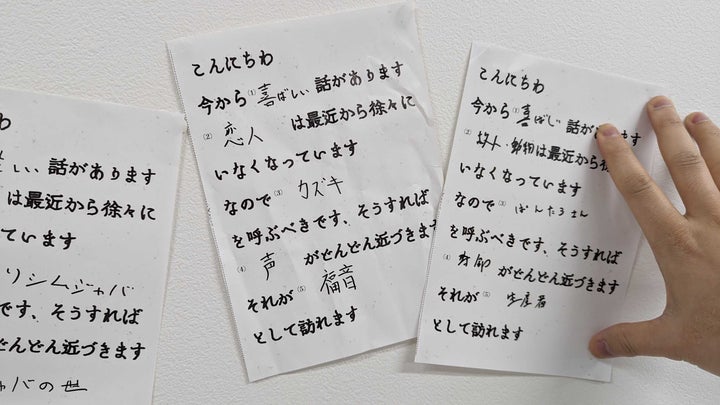 わ
い 話があります
は最近から徐々に
ています
リシムジャバ
です、そうすれば
どんどん近づきます
ャバの世
こんにちわ
今から①喜ばしい 話があります
② 恋人 は最近から徐々に
いなくなっています
なので③ カズキ
を呼ぶべきです、そうすれば
④ 声 がどんどん近づきます
それが⑤ 福音
として訪れます
こんにちわ
今から①喜ばし 話が ます
② は最近から
いなくなっています
なので③
を呼ぶべきです、そうすれば
④ がどんどん近づきます
それが⑤ 生産者
として訪れます